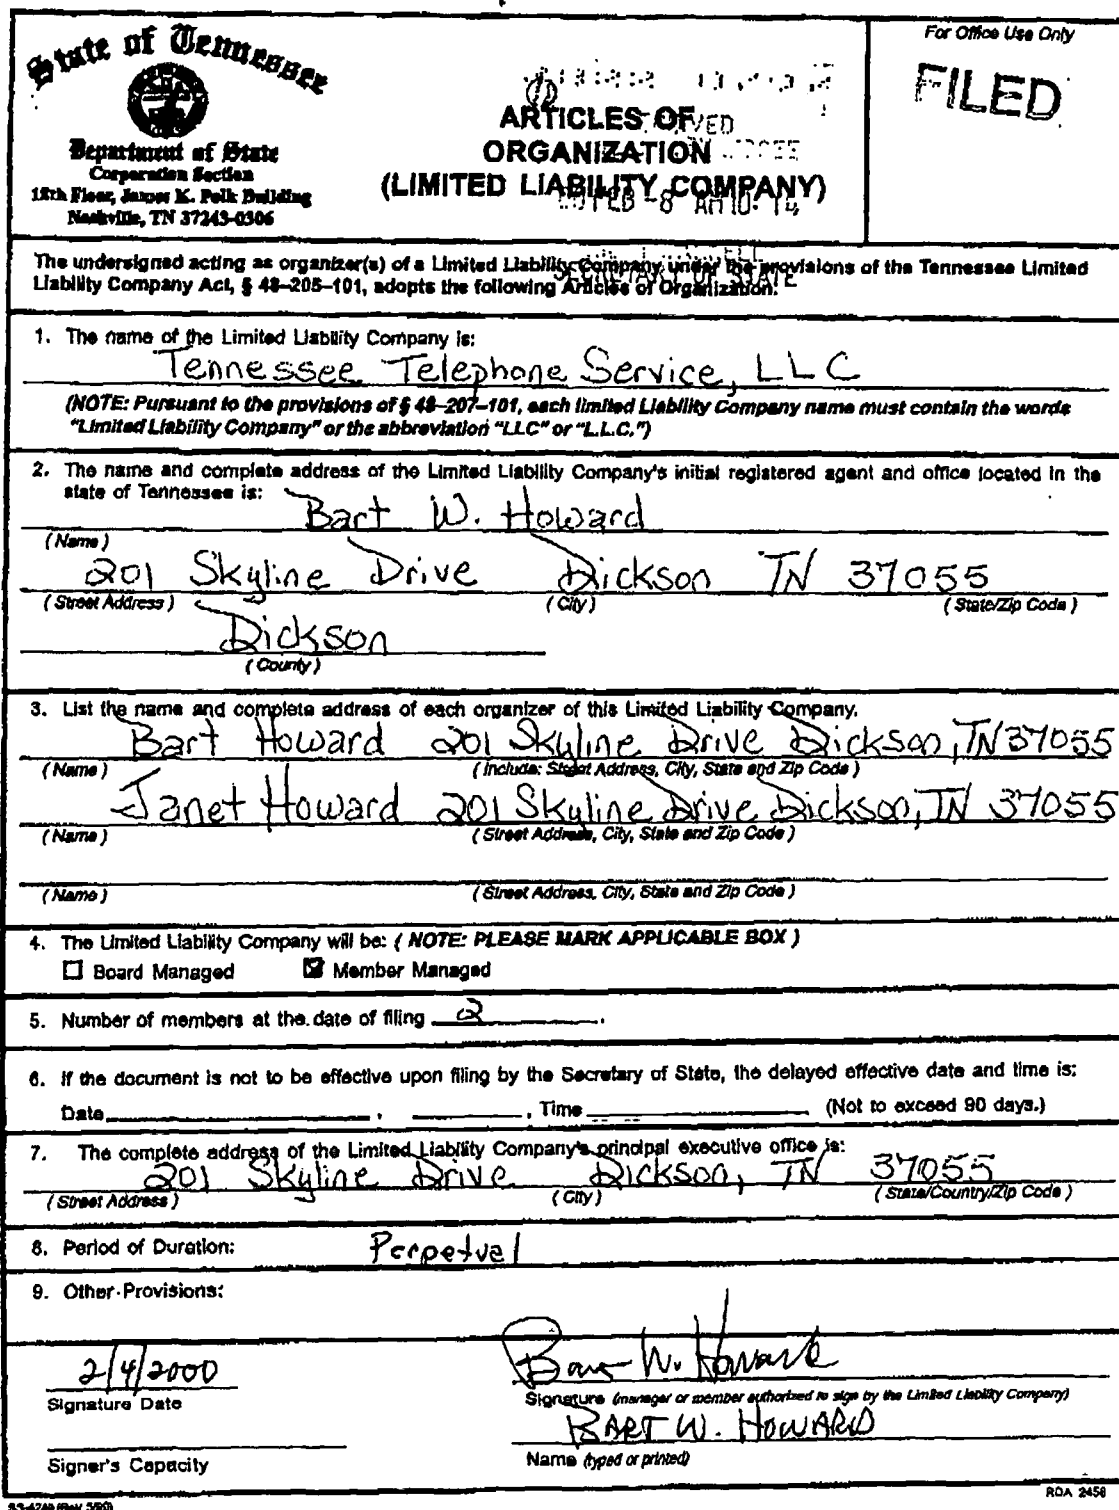 State of Tennessee
Department of State
Corporation Section
18th Floor, James K. Polk Building
Nashville, TN 37243-0306
ARTICLES OF
ORGANIZATION
(LIMITED LIABILITY COMPANY)
For Office Use Only
FILED
FEB -8 AM 10: 14
SECRETARY OF STATE
The undersigned acting as organizer(s) of a Limited Liability Company under the provisions of the Tennessee Limited
Liability Company Act, § 48-205-101, adopts the following Articles of Organization.
1. The name of the Limited Liability Company is:
Tennessee Telephone Service, LLC
(NOTE: Pursuant to the provisions of § 48-207-101, each limited Liability Company name must contain the words
"Limited Liability Company" or the abbreviation "LLC" or "L.L.C.")
2. The name and complete address of the Limited Liability Company's initial registered agent and office located in the
state of Tennessee is:
Bart W. Howard
(Name)
201 Skyline Drive Dickson TN 37055
(Street Address) (City) (State/Zip Code)
Dickson
(County)
3. List the name and complete address of each organizer of this Limited Liability Company.
Bart Howard 201 Skyline Drive Dickson, TN 37055
(Name) (Include: Street Address, City, State and Zip Code)
Janet Howard 201 Skyline Drive Dickson, TN 37055
(Name) (Street Address, City, State and Zip Code)
(Name) (Street Address, City, State and Zip Code)
4. The Limited Liability Company will be: (NOTE: PLEASE MARK APPLICABLE BOX)
Board Managed Member Managed
5. Number of members at the date of filing 2.
6. If the document is not to be effective upon filing by the Secretary of State, the delayed effective date and time is:
Date , , Time (Not to exceed 90 days.)
7. The complete address of the Limited Liability Company's principal executive office is:
201 Skyline Drive Dickson, TN 37055
(Street Address) (City) (State/Country/Zip Code)
8. Period of Duration: Perpetual
9. Other Provisions:
2/4/2000
Signature Date
Bart W. Howard
Signature (manager or member authorized to sign by the Limited Liability Company)
BART W. HOWARD
Signer's Capacity
Name (typed or printed)
RDA 2458